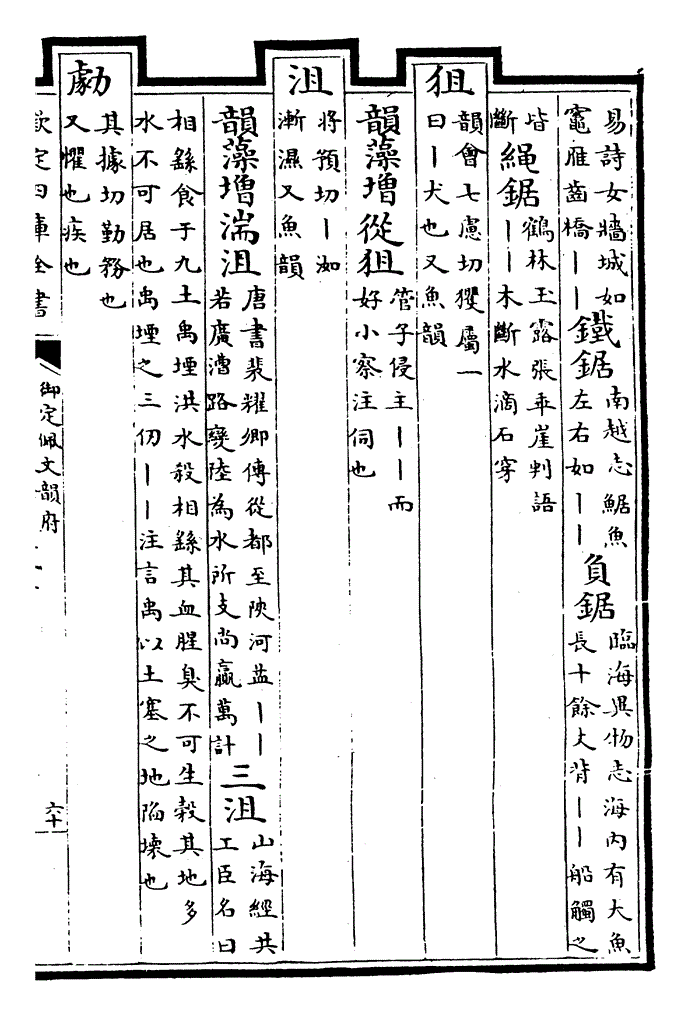 易詩女牆城如
竈雁齒橋丨丨鐵鋸南越志鋸魚
左右如丨丨負鋸臨海異物志海内有大魚
長十餘丈背丨丨船觸之
皆斷繩鋸鶴林玉露張乖崖判語
丨丨木斷水滴石穿
狙韻會七慮切玃屬一
曰丨犬也又魚韻
韻藻增從狙管子侵主丨丨而
好小察注伺也
沮將預切丨洳
漸濕又魚韻
韻藻增湍沮唐書裴耀卿傳從都至陜河益丨丨
若廣漕路變陸為水所支尚贏萬計三沮山海經共
工臣名曰
相繇食于九土禹堙洪水殺相繇其血腥臭不可生穀其地多
水不可居也禹堙之三仞丨丨注言禹以土塞之地陷壞也
勮其據切勤務也
又懼也疾也
欽定四庫全書
御定佩文韻府
六十